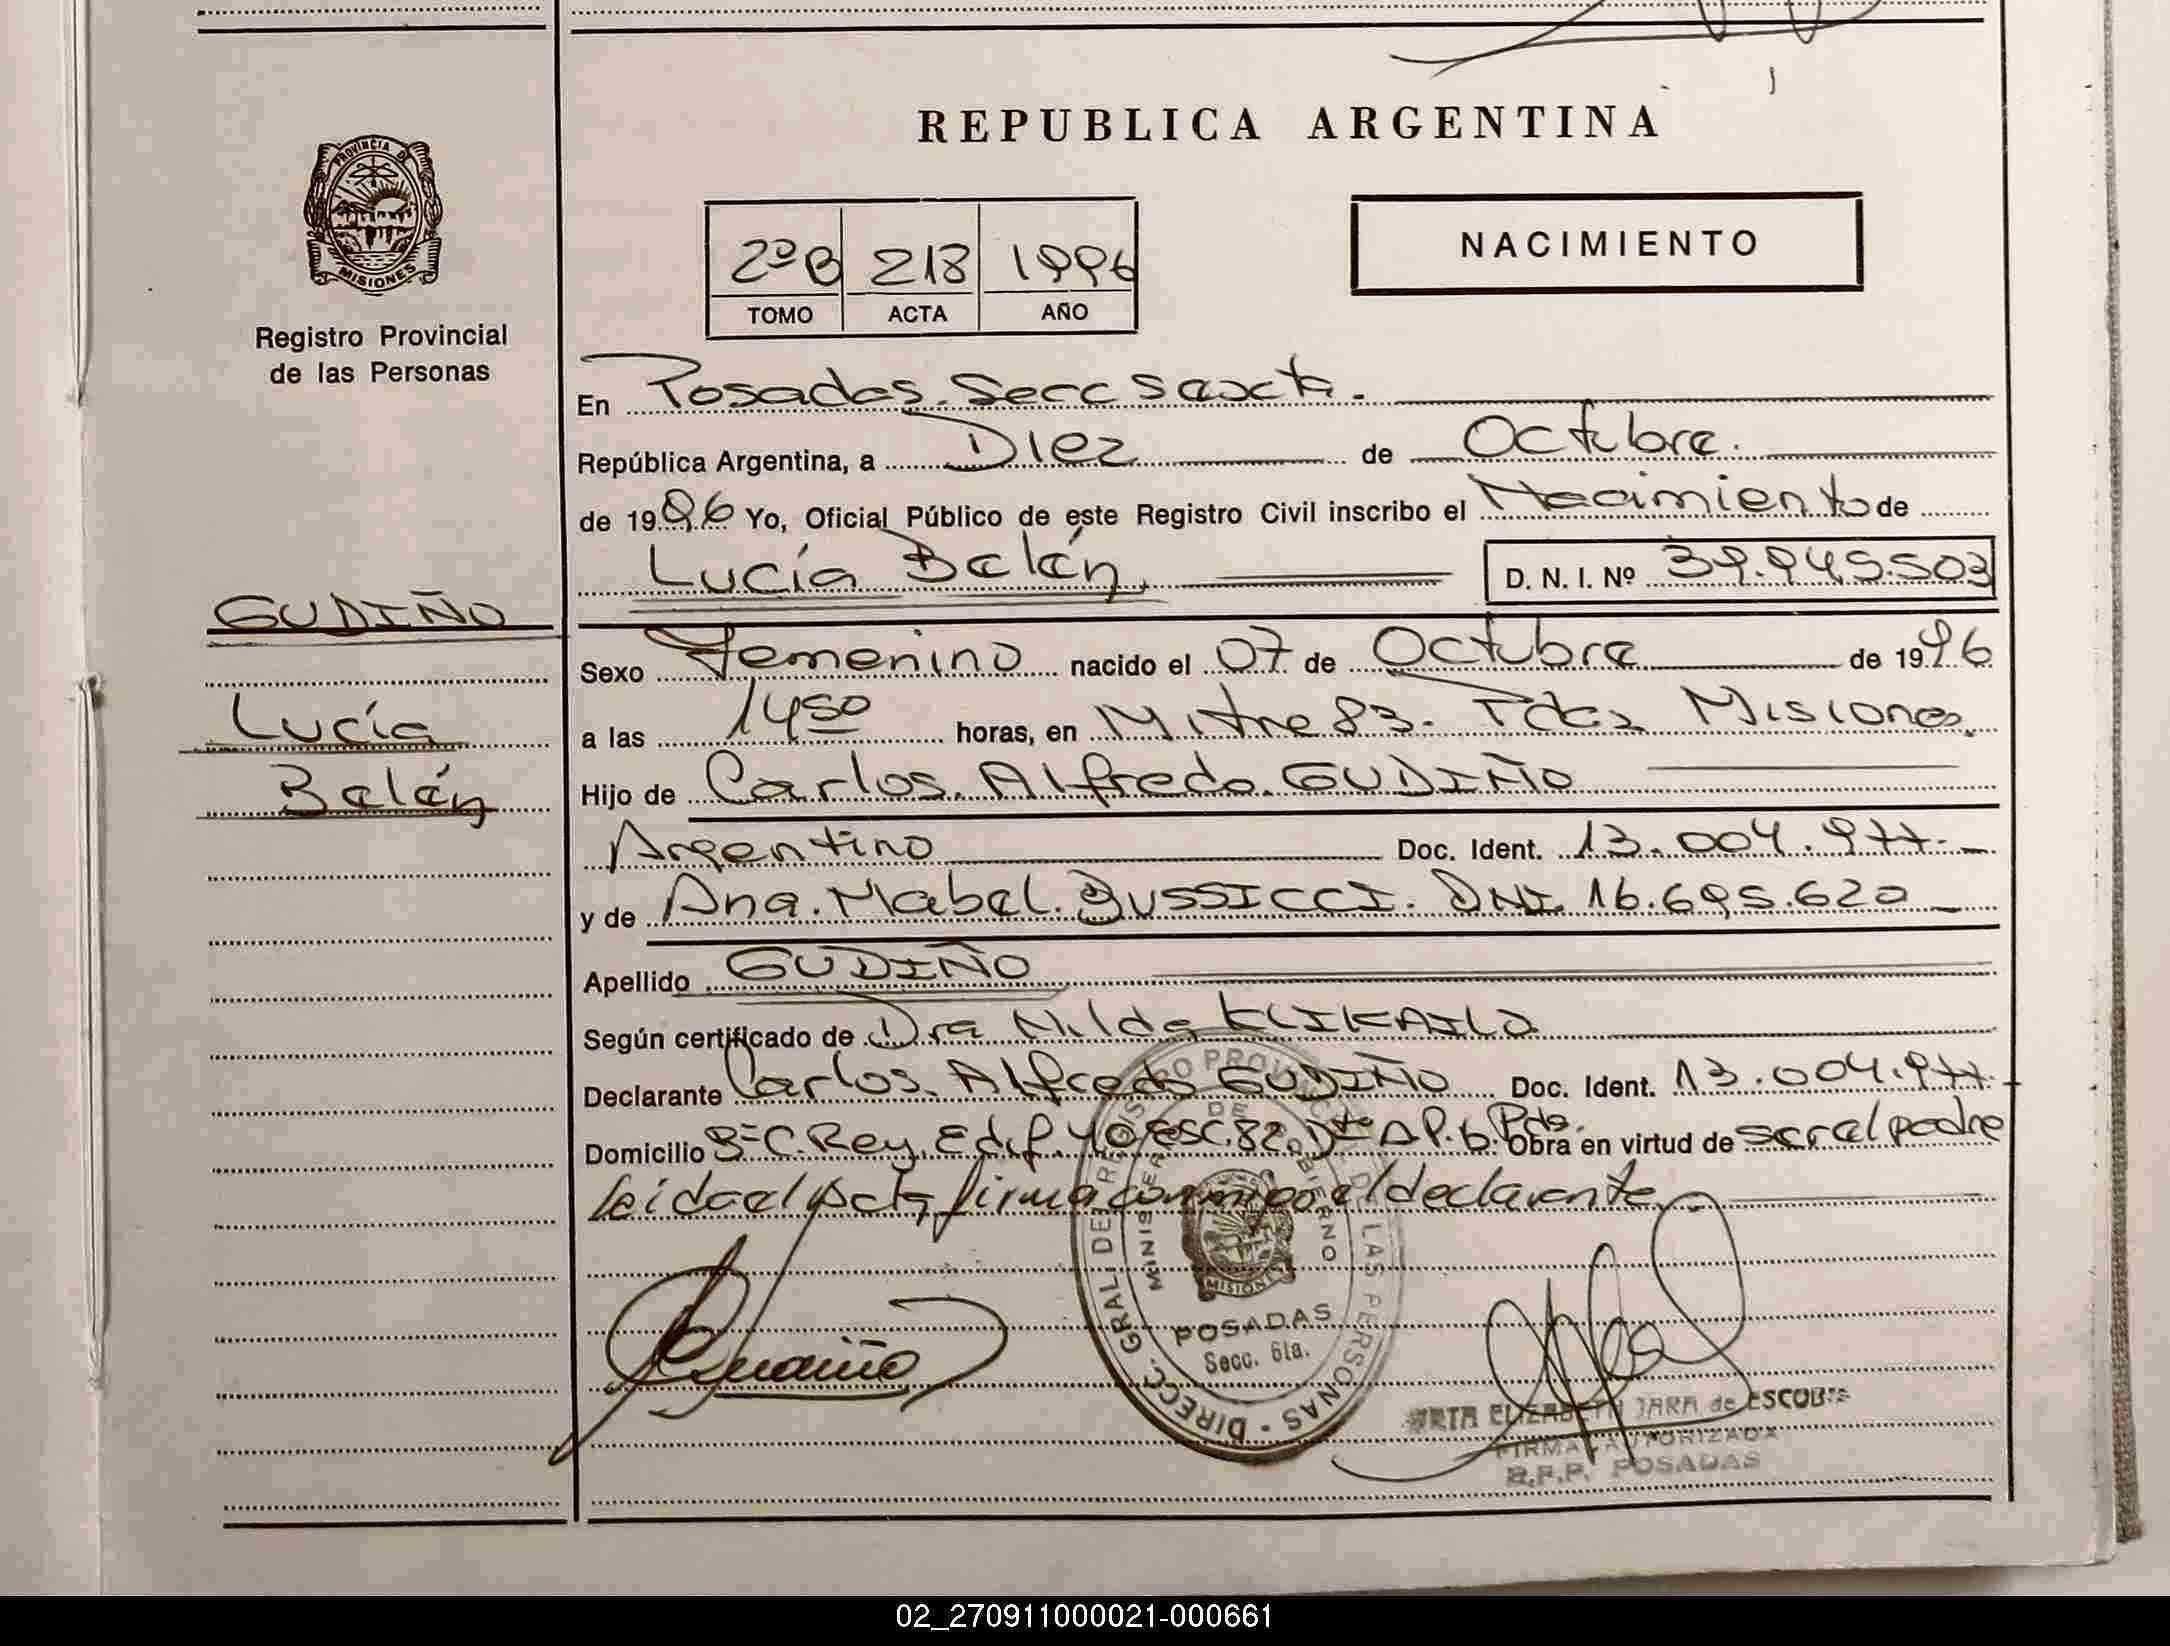 PROVINCIA DE
MISIONES
Registro Provincial
de las Personas
GUDIÑO
Lucía
Belén
REPUBLICA ARGENTINA
2ºB 218 1996
TOMO ACTA AÑO
NACIMIENTO
En Posadas. Secc Sexta.
República Argentina, a Diez de Octubre.
de 1996 Yo, Oficial Público de este Registro Civil inscribo el Nacimiento de
Lucía Belén, D. N. I. Nº 39.945.503
Sexo Femenino nacido el 07 de Octubre de 1996
a las 14 50 horas, en Mitre 83. Pdas Misiones.
Hijo de Carlos. Alfredo. GUDIÑO
Argentino Doc. Ident. 13.004.977.
y de Ana. Mabel. BUSSICCI. DNI. 16.695.620
Apellido GUDIÑO
Según certificado de Dra Nilda KLIKAILO
Declarante Carlos. Alfredo GUDIÑO Doc. Ident. 13.004.977.
Domicilio Bº C. Rey. Edif. 40 ESC. 82. Dto D P. b. Pdas. Obra en virtud de ser el padre
leida el Acta firma conmigo el declarante.
Gudiño
DIRECC. GRAL DEL REGISTRO PROVINCIAL DE LAS PERSONAS
MINISTERIO DE GOBIERNO
MISIONES
POSADAS
Secc. 6ta.
ELIZABETH JARA de
FIRMA AUTORIZADA
R.P.P. POSADAS
02_270911000021-000661